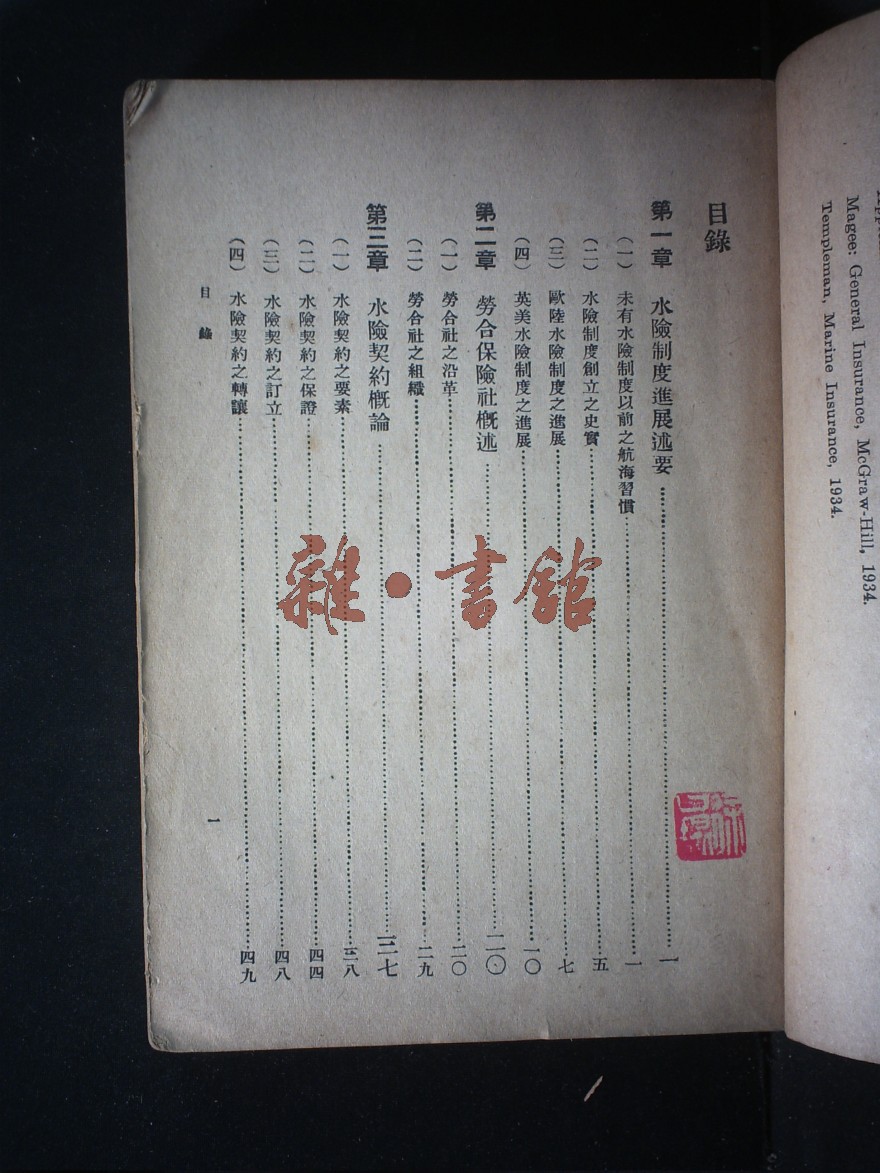 目錄
第一章 水險制度進展述要……一
(一) 未有水險制度以前之航海習慣……一
(二) 水險制度創立之史實……五
(三) 歐陸水險制度之進展……七
(四) 英美水險制度之進展……一〇
第二章 勞合保險社概述……二〇
(一) 勞合社之沿革……二〇
(二) 勞合社之組織……二九
第三章 水險契約概論……三七
(一) 水險契約之要素……三八
(二) 水險契約之保證……四四
(三) 水險契約之訂立……四八
(四) 水險契約之轉讓……四九
目錄
一
雜·書館
Magee: General Insurance, McGraw-Hill, 1934.
Templeman, Marine Insurance, 1934.